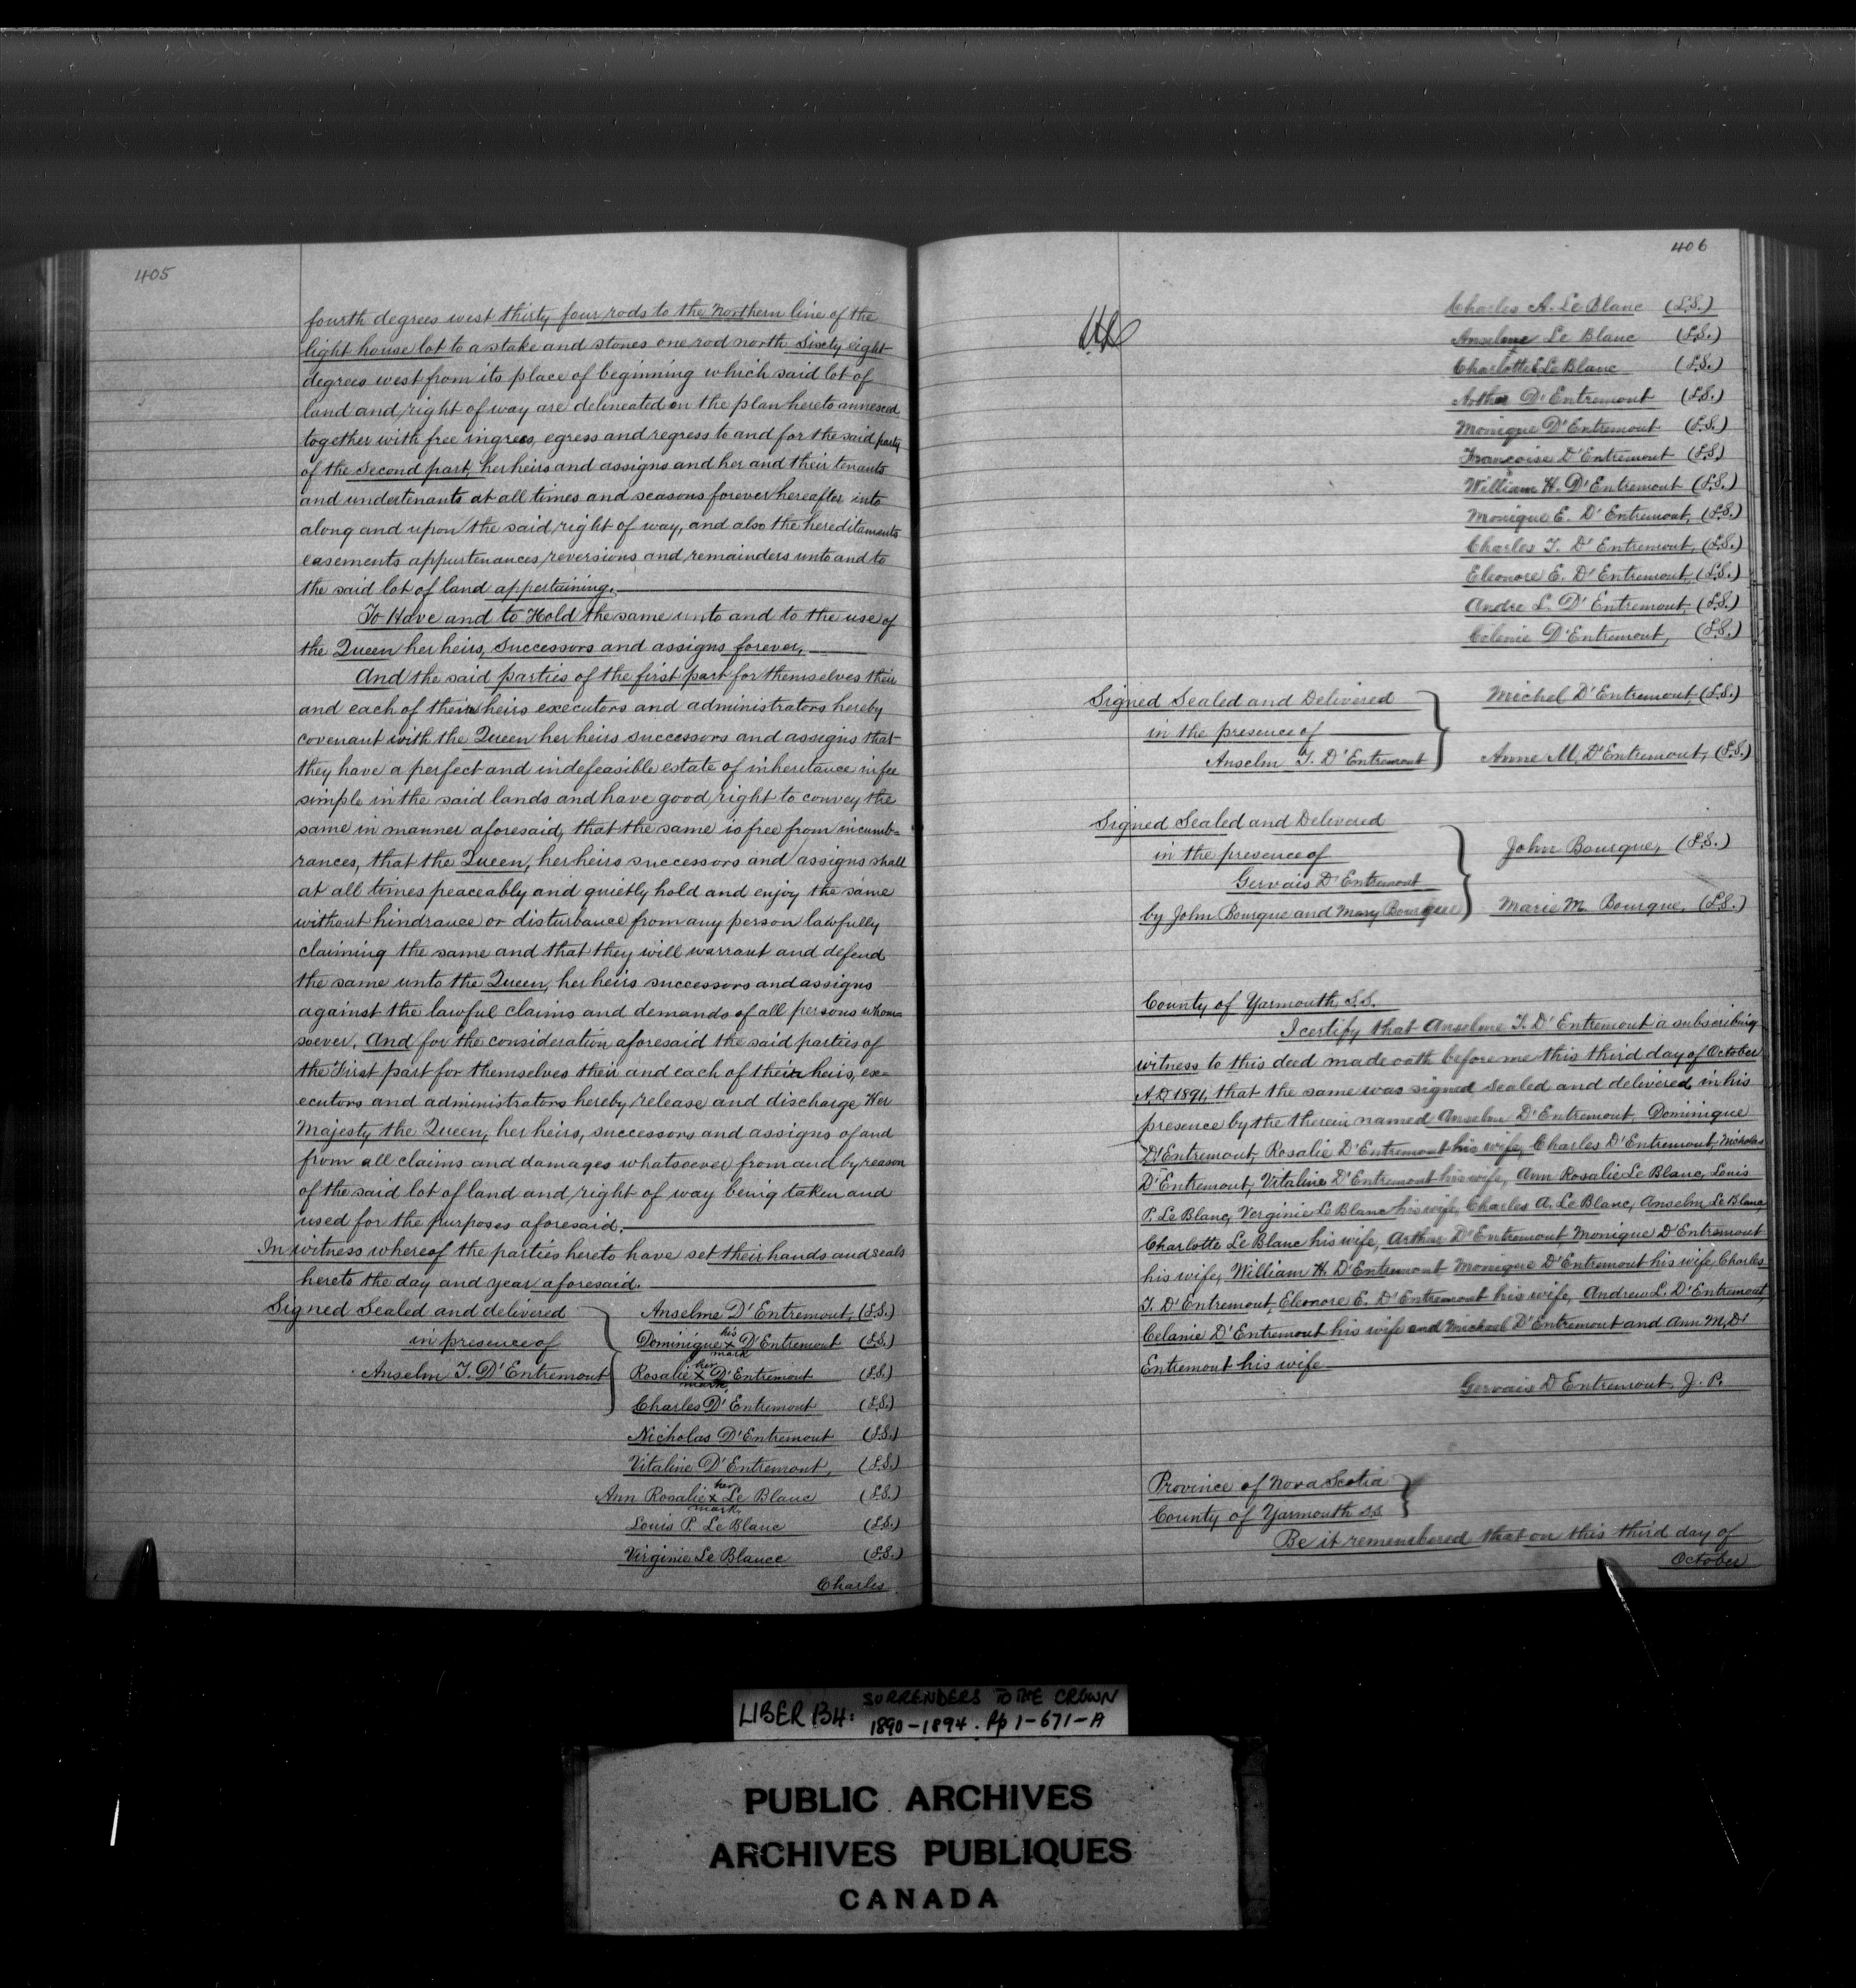 405
fourth degrees west thirty four rods to the Northern line of the
light house lot to a stake and stones one rod north Sixty eight
degrees west from its place of beginning which said lot of
land and right of way are delineated on the plan hereto annexed
together with free ingress, egress and regress to and for the said party
of the Second part, her heirs and assigns and her and their tenants
and undertenants at all times and seasons forever hereafter into
along and upon the said right of way, and also the hereditaments
easements appurtenances reversions and remainders unto and to
the said lot of land appertaining.
To Have and to Hold the same unto and to the use of
the Queen her heirs, successors and assigns forever,
And the said parties of the first part for themselves their
and each of their heirs executors and administrators hereby
covenant with the Queen her heirs successors and assigns that
they have a perfect and indefeasible estate of inheritance in fee
simple in the said lands and have good right to convey the
same in manner aforesaid, that the same is free from incumb=
rances, that the Queen, her heirs successors and assigns shall
at all times peaceably and quietly hold and enjoy the same
without hindrance or disturbance from any person lawfully
claiming the same and that they will warrant and defend
the same unto the Queen, her heirs successors and assigns
against the lawful claims and demands of all persons whom=
soever. And for the consideration aforesaid the said parties of
the First part for themselves their and each of their heirs, ex=
ecutors and administrators hereby release and discharge Her
Majesty the Queen, her heirs, successors and assigns of and
from all claims and damages whatsoever from and by reason
of the said lot of land and right of way being taken and
used for the purposes aforesaid.
In witness whereof the parties hereto have set their hands and seals
hereto the day and year aforesaid.
Signed Sealed and delivered
in presence of
Anselm T. D'Entremont
Anselme D'Entremont, (L.S.)
his
Dominique x D'Entremont (L.S.)
mark
her
Rosalie x D'Entremont (L.S.)
mark,
Charles D'Entremont (L.S.)
Nicholas D'Entremont (L.S.)
Vitaline D'Entremont, (L.S.)
her
Ann Rosalie x Le Blanc (L.S.)
mark,
Louis P. Le Blanc (L.S.)
Virginie Le Blance (L.S.)
Charles
406
Charles A. Le Blanc (L.S.)
Anselme Le Blanc (L.S.)
Charlotte E Le Blanc (L.S.)
Arthur D'Entremont (L.S.)
Monique D'Entremont (L.S.)
Francoise D'Entremont (L.S)
William H. D'Entremont (L.S.)
Monique E. D'Entremont, (L.S.)
Charles T. D'Entremont, (L.S.)
Eleonore E. D'Entremont, (L.S.)
Andre L. D'Entremont, (L.S.)
Celenie D'Entremont, (L.S.)
Signed Sealed and Delivered
in the presence of
Anselm T. D'Entremont
Michel D'Entremont, (L.S.)
Anne M. D'Entremont, (L.S.)
Signed Sealed and Delivered
in the presence of
Gervais D'Entremont
by John Bourque and Mary Bourque
John Bourque, (L.S.)
Marie M. Bourque, (L.S.)
County of Yarmouth S.S.
I certify that Anselme T. D'Entremont a subscribing
witness to this deed made oath before me this third day of October
A.D 1891, that the same was signed Sealed and delivered in his
presence by the therein named Anselme D'Entremont, Dominique
D'Entremont, Rosalie D'Entremont his wife, Charles D'Entremont, Nicholas
D'Entremont, Vitaline D'Entremont his wife, Ann Rosalie Le Blanc, Louis
P. Le Blanc, Verginie Le Blanc his wife, Charles A. Le Blanc, Anselm Le Blanc
Charlotte Le Blanc his wife, Arthur D'Entremont Monique D'Entremont
his wife, William H. D'Entremont Monique D'Entremont his wife Charles
T. D'Entremont, Eleonore E. D'Entremont his wife, Andrew L. D'Entremont,
Celanie D'Entremont his wife and Michael D'Entremont and Ann M. D'
Entremont his wife
Gervais D Entremont, J. P.
Province of Nova Scotia
County of Yarmouth S.S.
Be it remembered that on this third day of
October
LIBER B4: SURRENDERS TO THE CROWN
1890-1894. Pp 1-671-A
PUBLIC ARCHIVES
ARCHIVES PUBLIQUES
CANADA